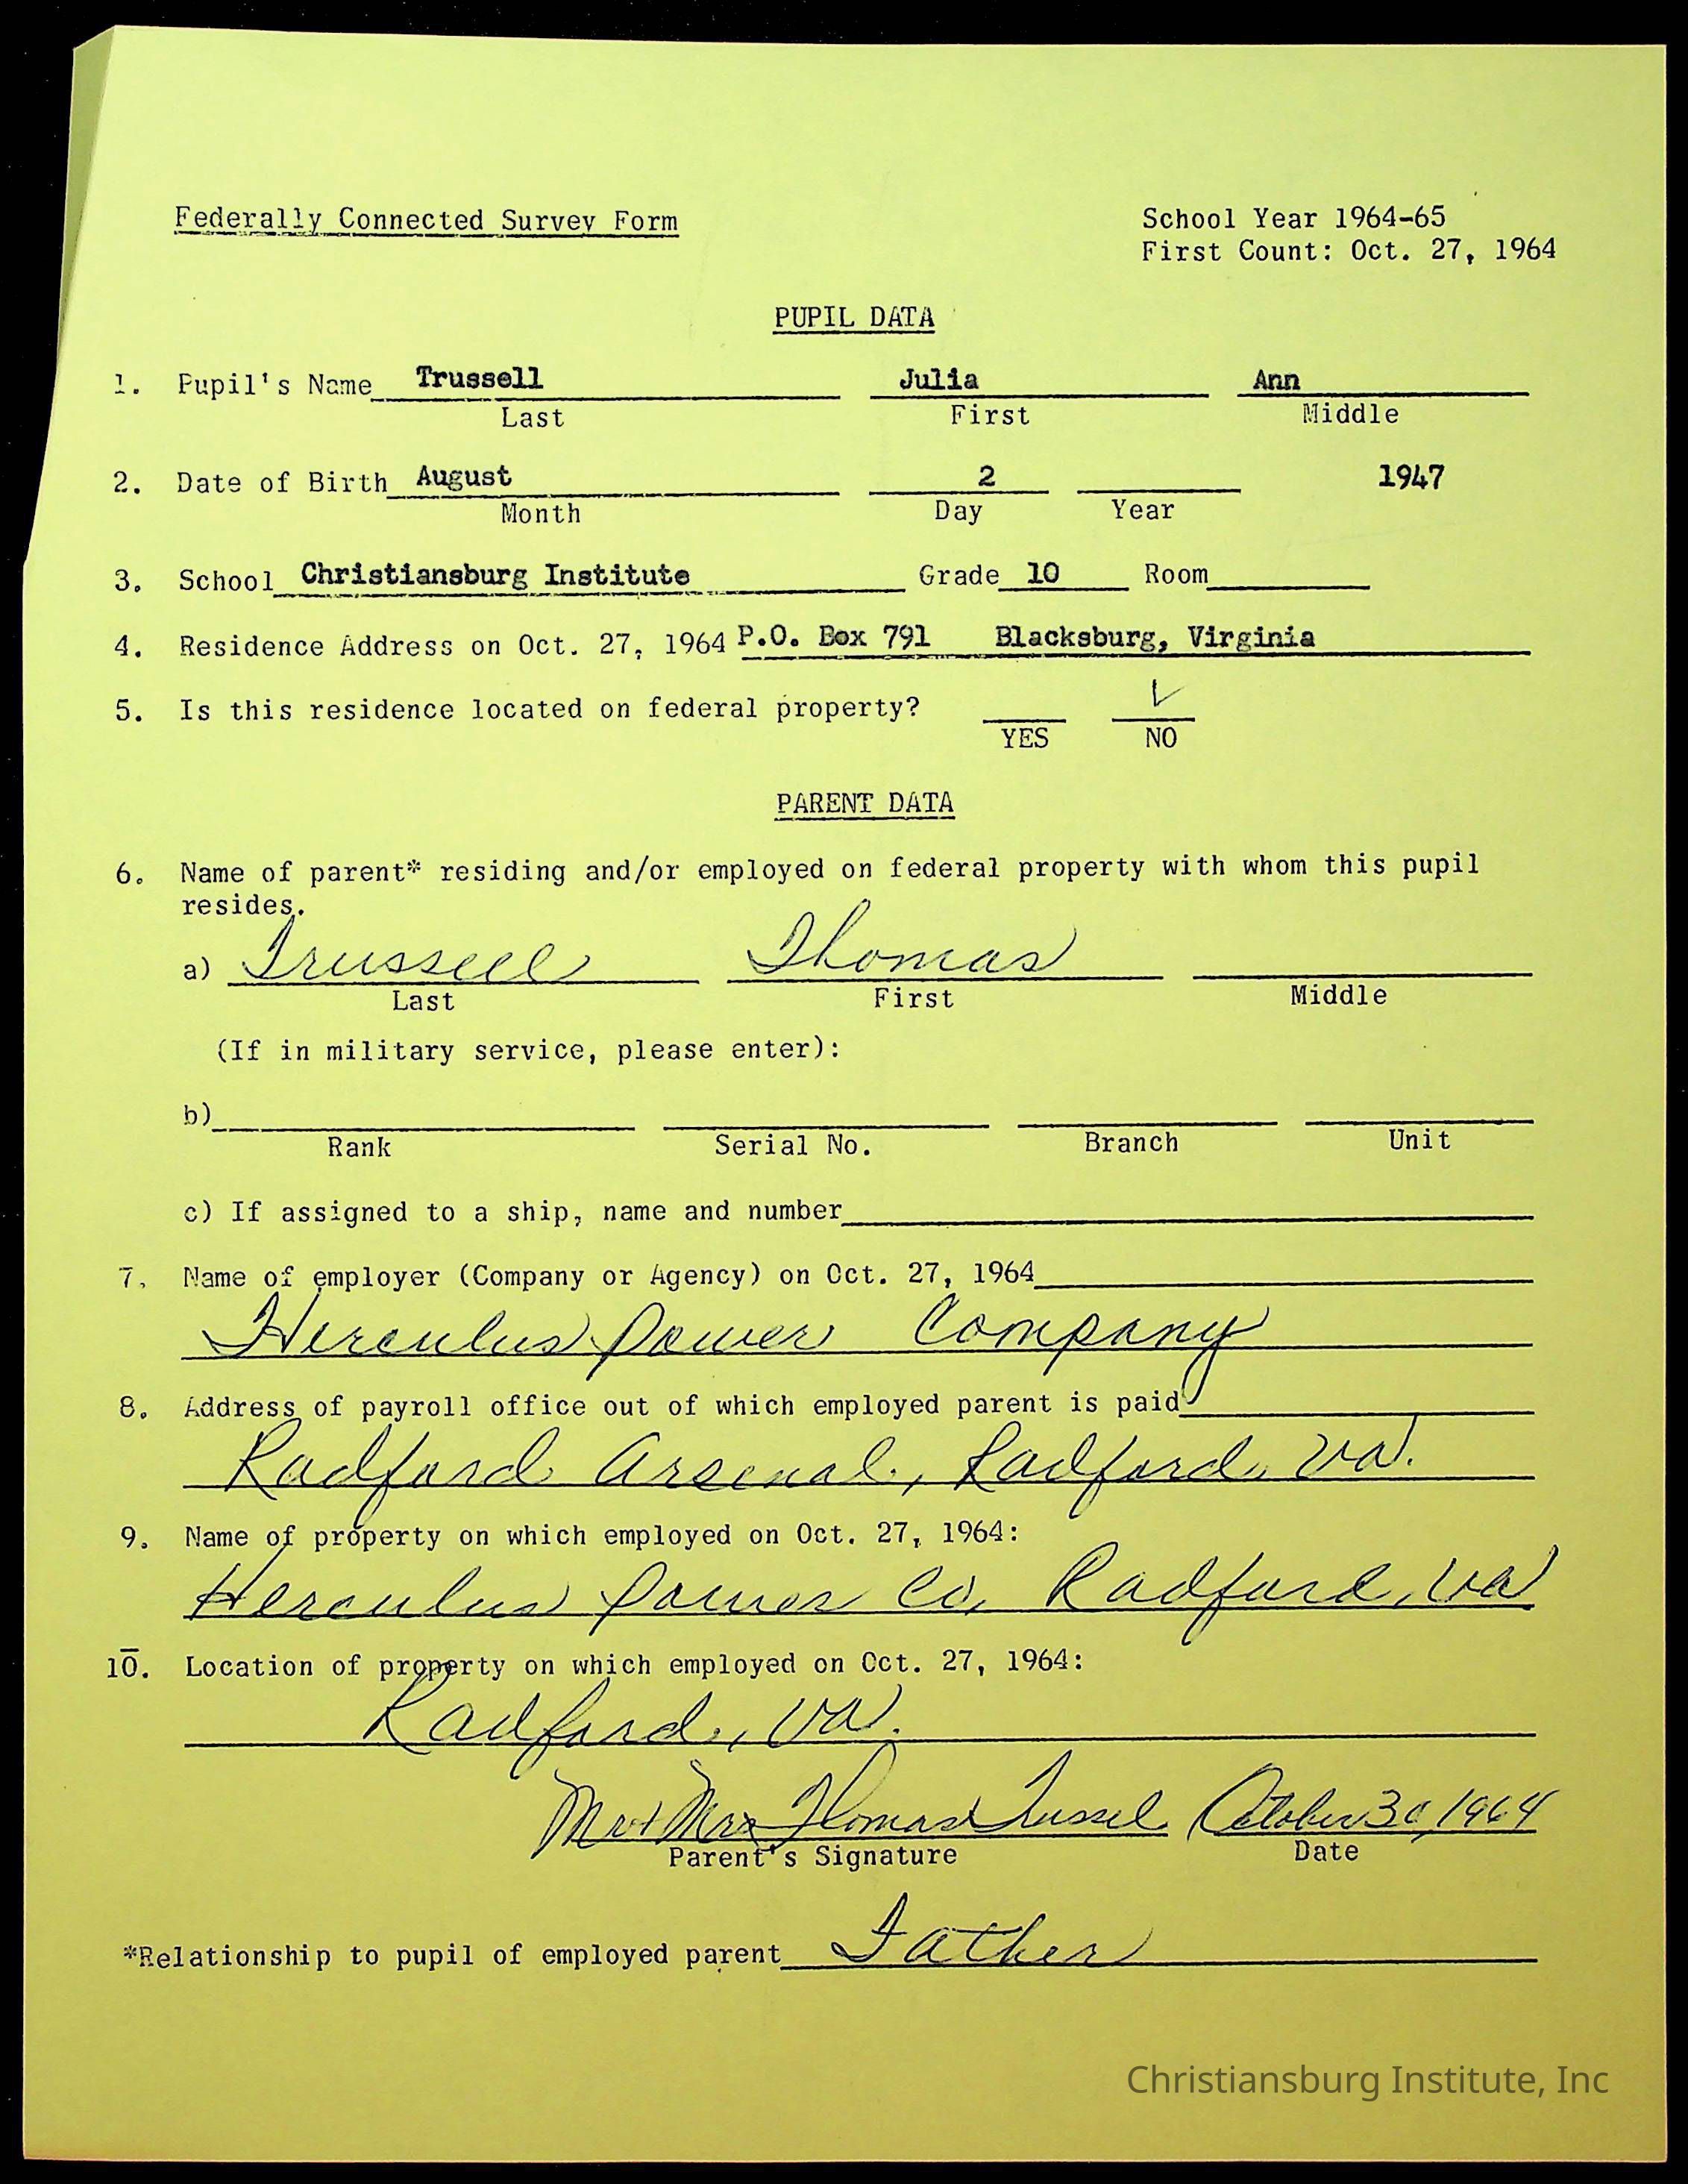 Federally Connected Survey Form
School Year 1964-65
First Count: Oct. 27, 1964
PUPIL DATA
1. Pupil's Name Trussell Julia Ann
Last First Middle
2. Date of Birth August 2 1947
Month Day Year
3. School Christiansburg Institute Grade 10 Room
4. Residence Address on Oct. 27, 1964 P.O. Box 791 Blacksburg, Virginia
5. Is this residence located on federal property? ✓
YES NO
PARENT DATA
6. Name of parent* residing and/or employed on federal property with whom this pupil
resides.
a) Trussell Thomas
Last First Middle
(If in military service, please enter):
b)
Rank Serial No. Branch Unit
c) If assigned to a ship, name and number
7. Name of employer (Company or Agency) on Oct. 27, 1964
Herculus Power Company
8. Address of payroll office out of which employed parent is paid
Radford Arsenal, Radford, Va.
9. Name of property on which employed on Oct. 27, 1964:
Herculus Power Co, Radford, Va
10. Location of property on which employed on Oct. 27, 1964:
Radford, Va.
Mr + Mrs Thomas Trussel October 30, 1964
Parent's Signature Date
*Relationship to pupil of employed parent Father
Christiansburg Institute, Inc